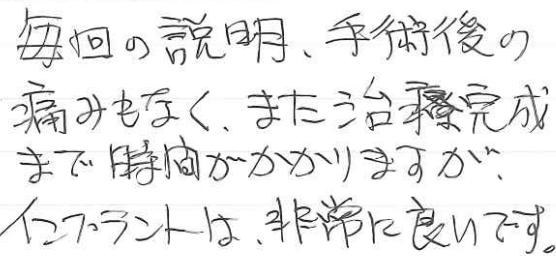 毎回の説明、手術後の
痛みもなく、また治療完成
まで時間がかかりますが、
インプラントは、非常に良いです。